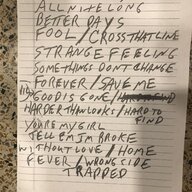 ALL NITE LONG
BETTER DAYS
FOOL / CROSS THAT LINE
STRANGE FEELING
SOMETHINGS DONT CHANGE
FOREVER / SAVE ME
GOOD IS GONE / HARD TO FIND
HARDER THAN LOOKS / HARD TO FIND
YOURE MY GIRL
TELL EM IM BROKE
WITHOUT LOVE / HOME
FEVER / WRONG SIDE
TRAPPED